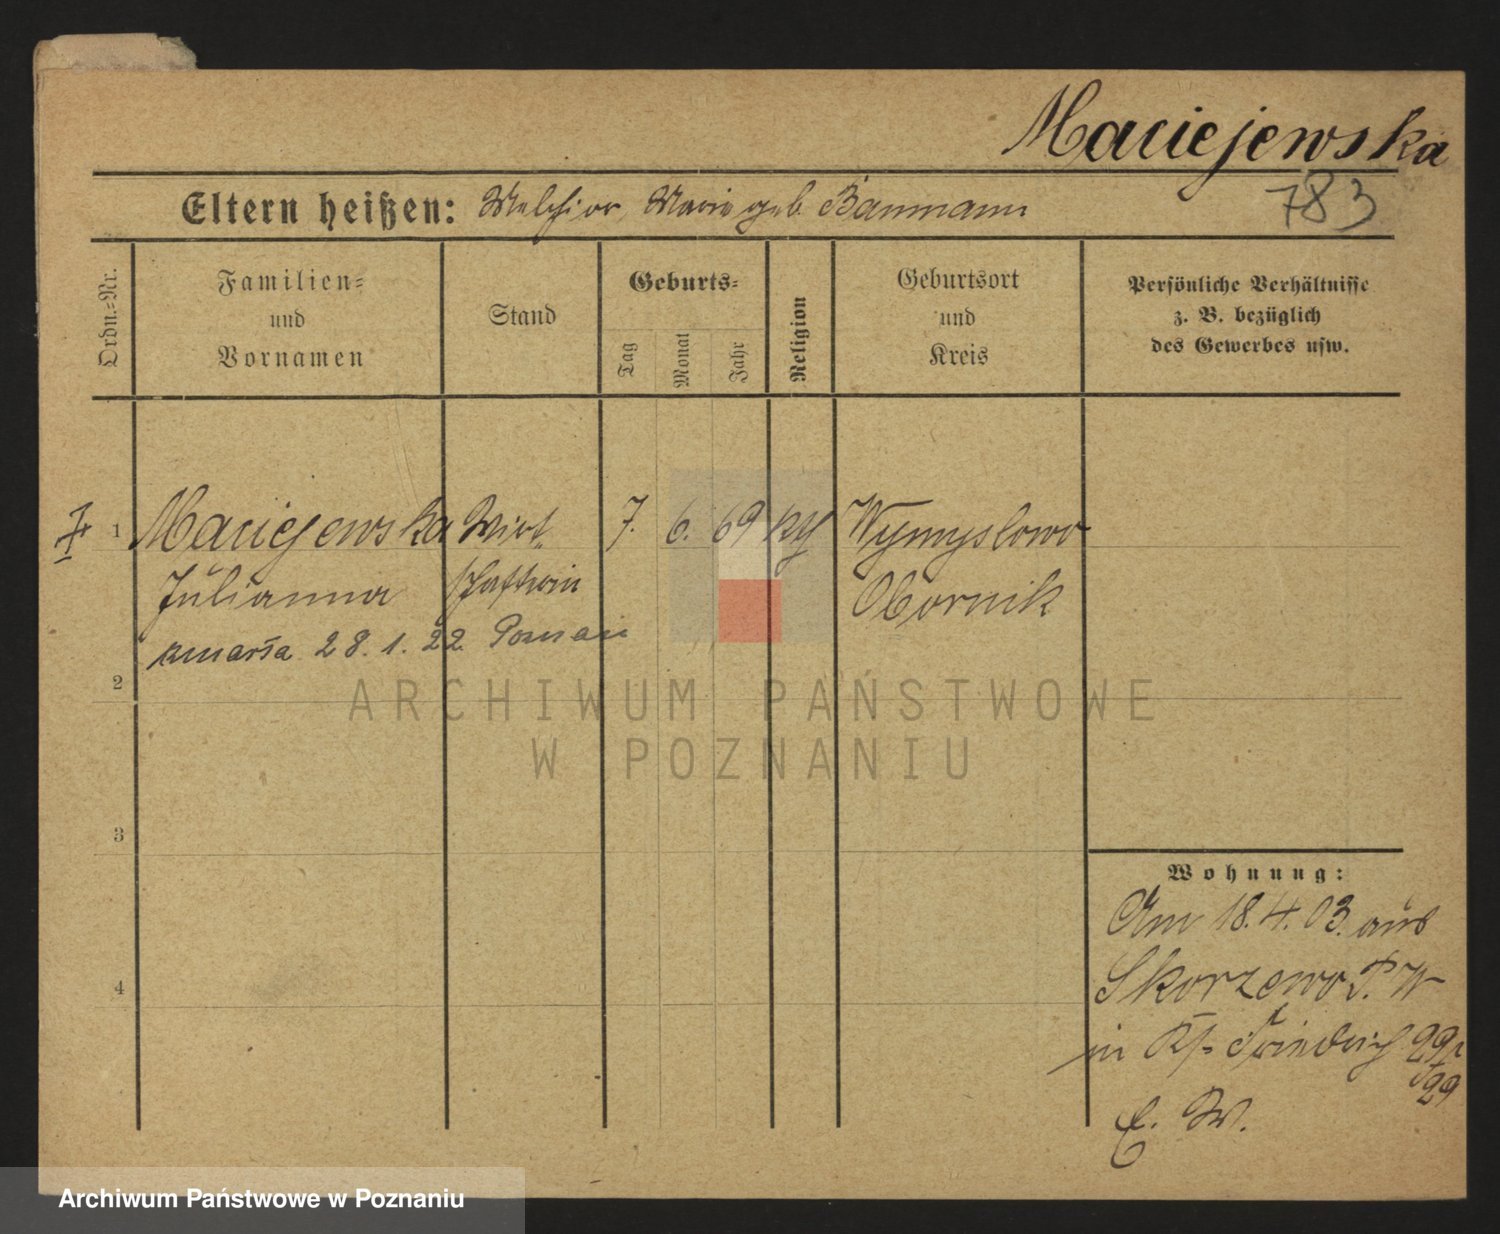 Maciejewska
783
Eltern heißen: Melchior, Marie geb. Baumann
Ordn.-Nr.
Familien- und Vornamen
Stand
Geburts-
Tag
Monat
Jahr
Religion
Geburtsort und Kreis
Persönliche Verhältnisse
z. B. bezüglich
des Gewerbes usw.
1 Maciejewska Wirt 7. 6. 69 Wymyslowo
Julianna schafterin Obornik
zmarła 28.1.22. Poznań
2
3
4
Wohnung:
Am 18.4.03. aus
Skorzewo P. W
in Friedrich
E. W.
ARCHIWUM PAŃSTWOWE
W POZNANIU
Archiwum Państwowe w Poznaniu